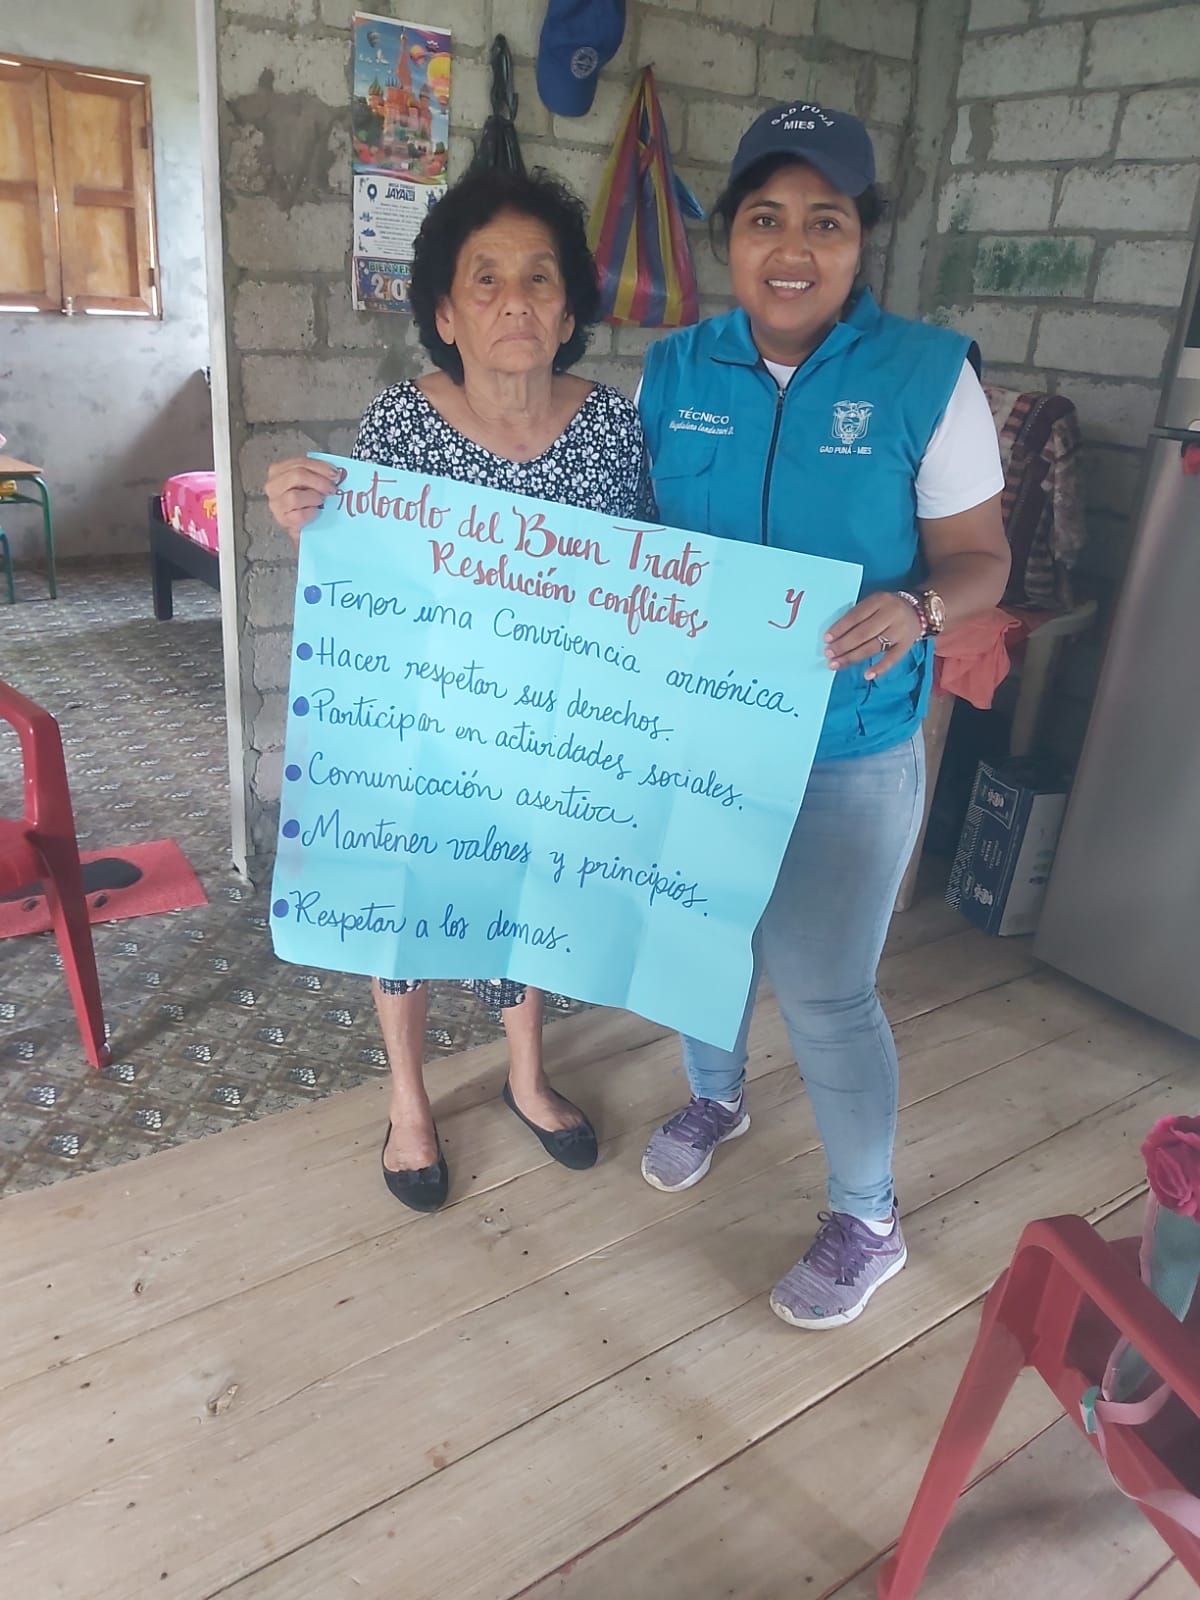 GAD PUNÁ
MIES
TÉCNICO
GAD PUNÁ - MIES
JAYA
Protocolo del Buen Trato y
Resolución conflictos
Tener una Convivencia armónica.
Hacer respetar sus derechos.
Participar en actividades sociales.
Comunicación asertiva.
Mantener valores y principios.
Respetar a los demas.